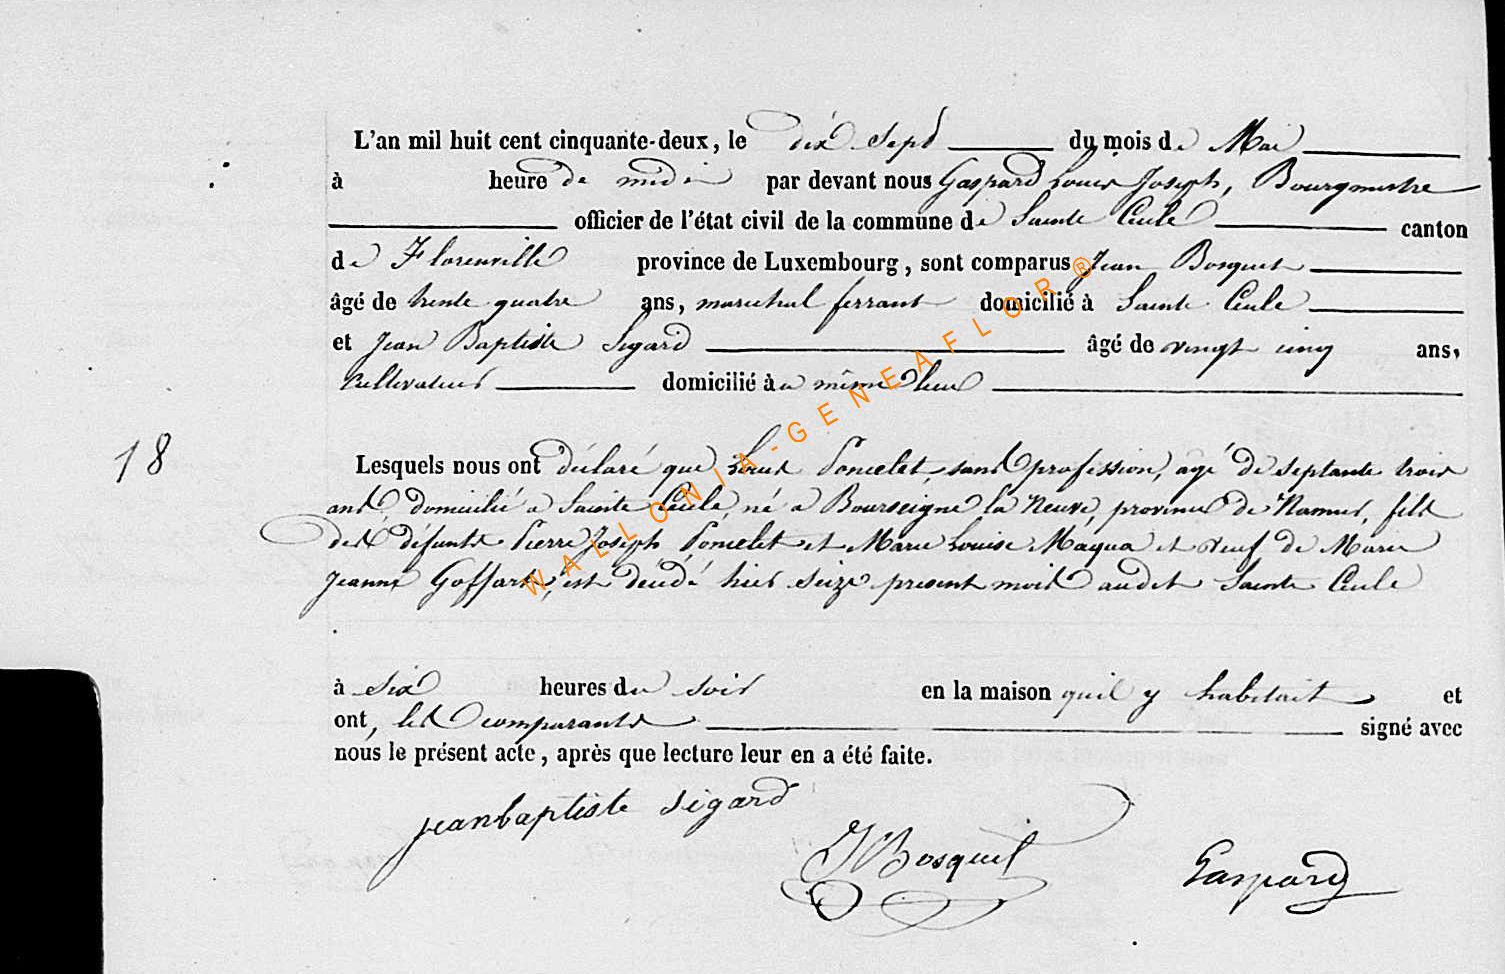 L'an mil huit cent cinquante-deux, le dix Sept du mois de Mai
à heure de midi par devant nous Gaspard Louis Joseph, Bourgmestre
officier de l'état civil de la commune de Sainte Cecile canton
de Florenville province de Luxembourg, sont comparus Jean Bosquet
âgé de trente quatre ans, marechal ferrant domicilié à Sainte Cecile
et Jean Baptiste Sigard âgé de vingt cinq ans,
Cultivateur domicilié à même lieu
18
Lesquels nous ont déclaré que Louis Poncelet, sans profession, agé de septante trois
ans, domicilié a Sainte Cécile, né a Bourseigne la Neuve, province de Namur, fils
des défunts Pierre Joseph Poncelet et Marie Louise Maqua et veuf de Marie
Jeanne Goffart, est décédé hier seize present mois audit Sainte Cecile
à six heures du soir en la maison quil y habitait et
ont, les comparants signé avec
nous le présent acte, après que lecture leur en a été faite.
jeanbaptiste Sigard
J Bosquet
Gaspard
WALLONIA-GENEAFLOR®